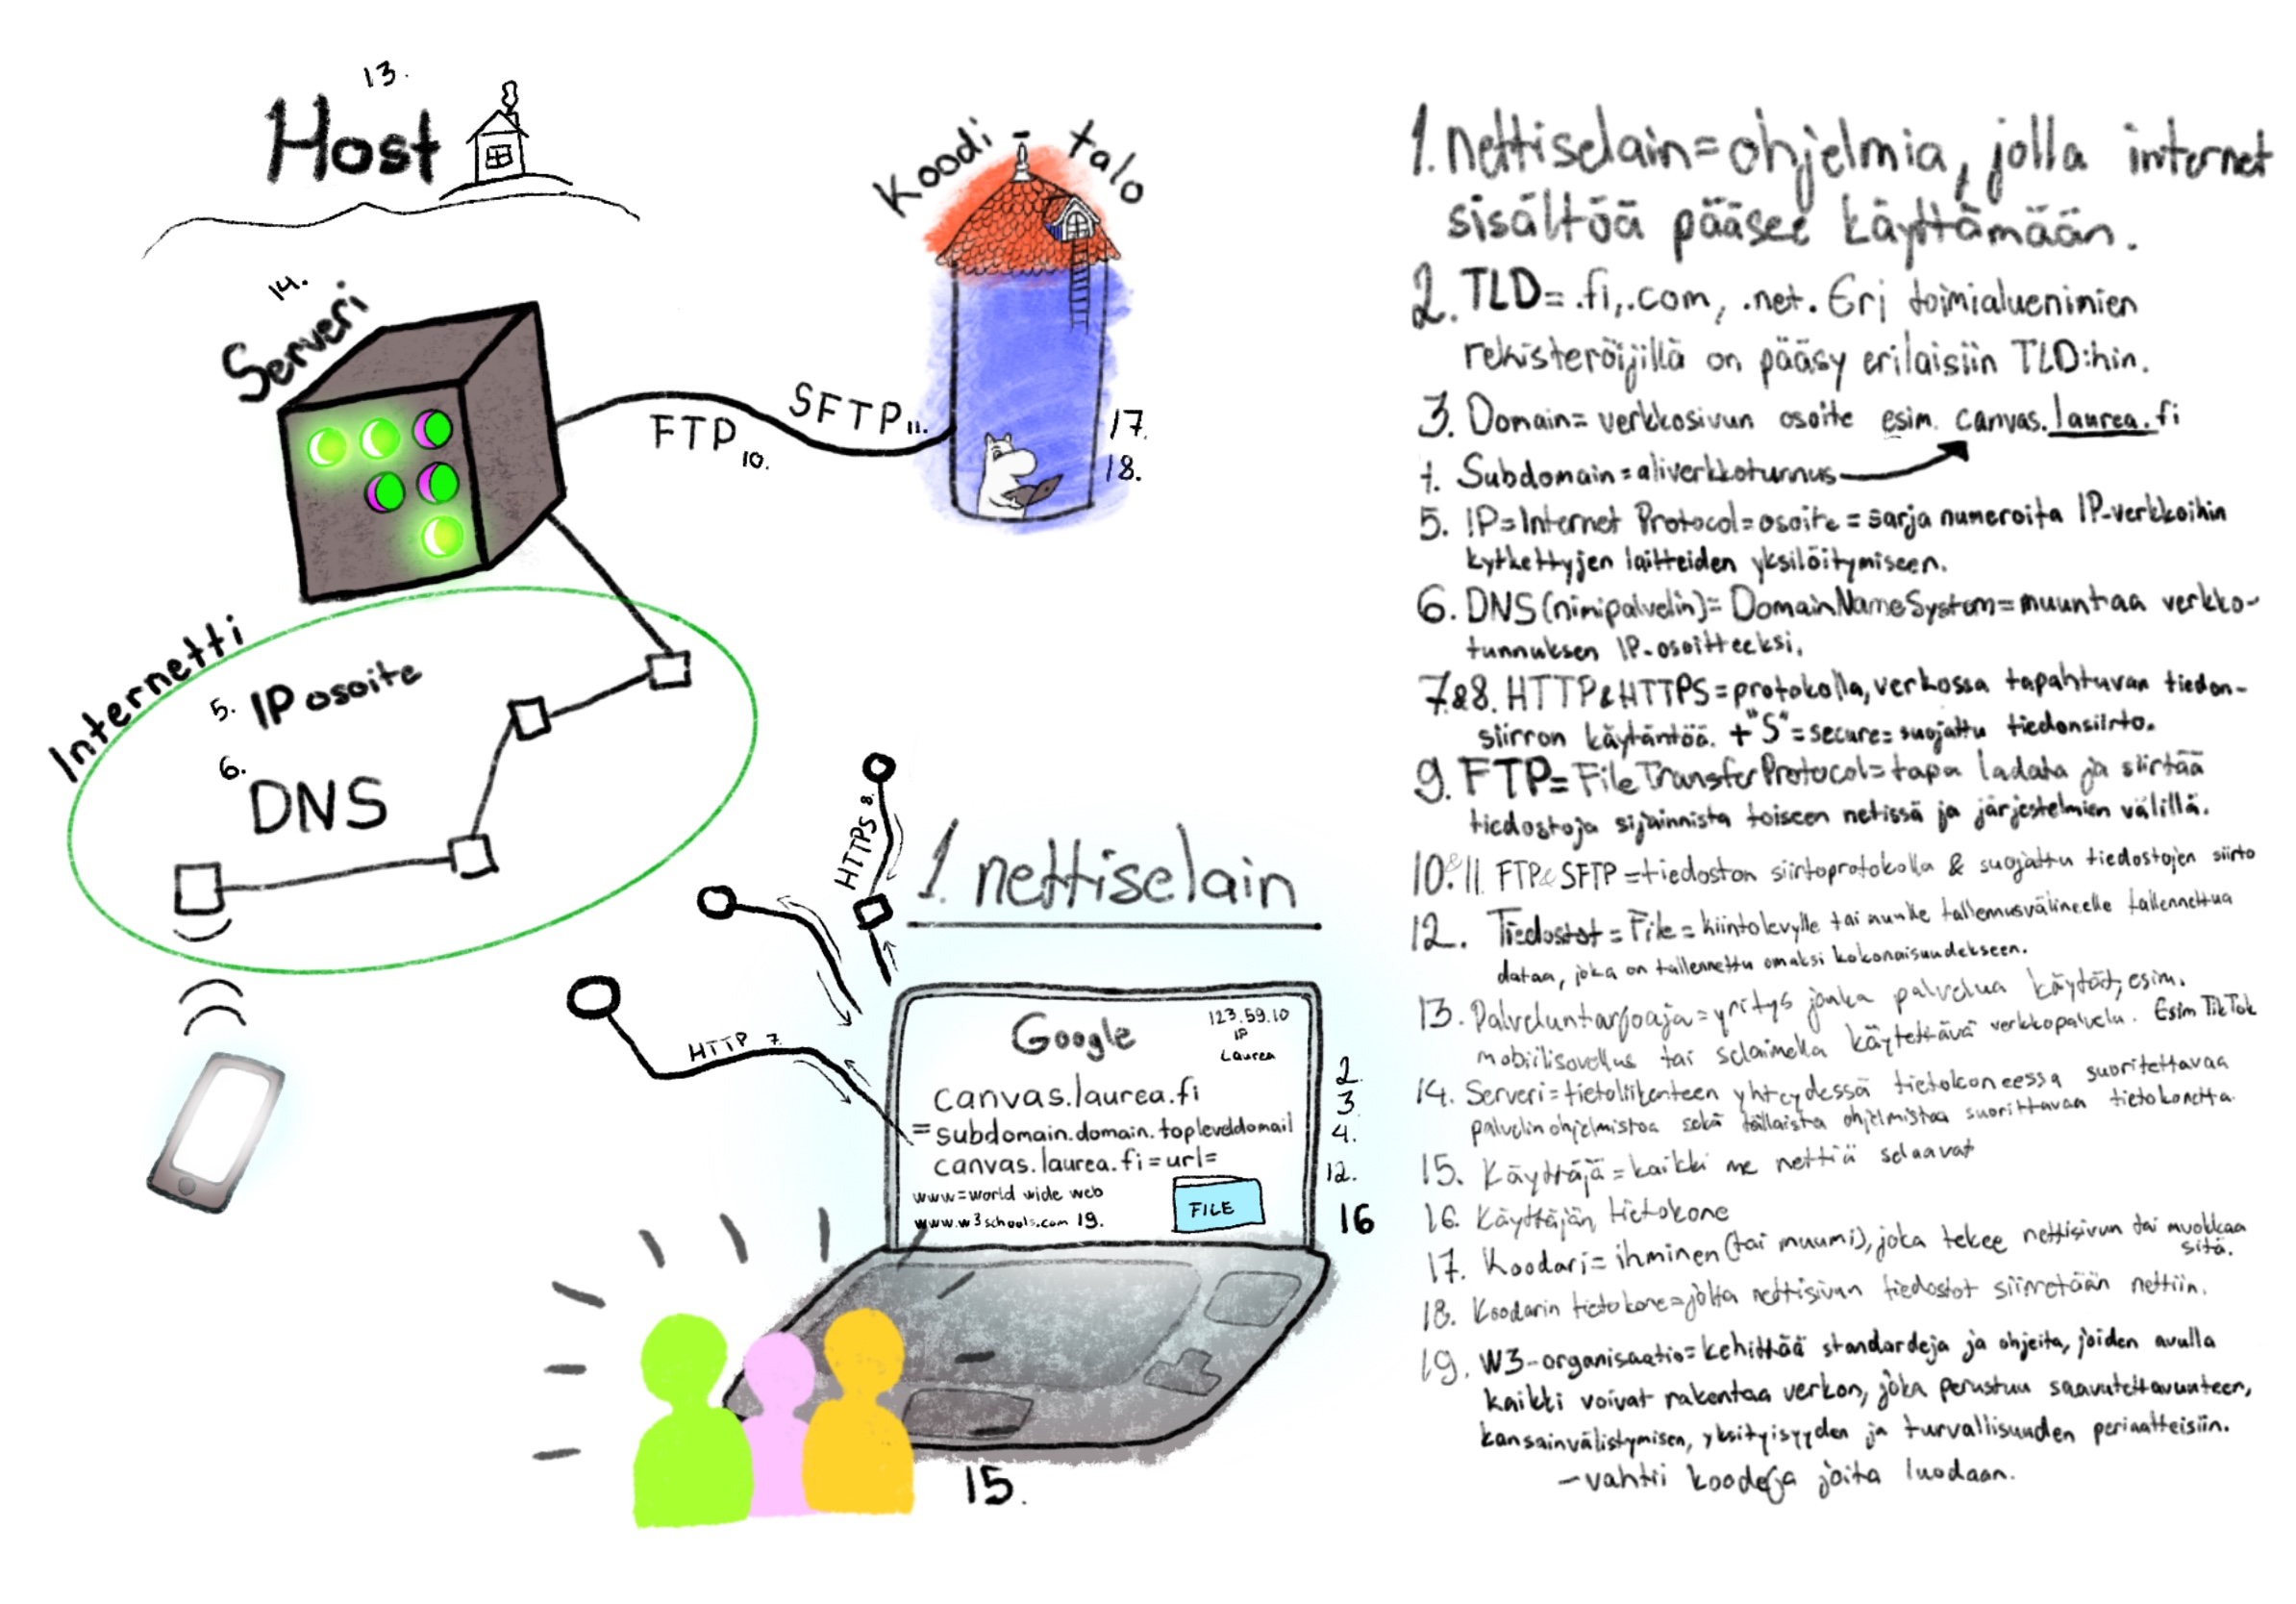 13.
Host
14.
Serveri
Koodi-talo
FTP 10.
SFTP 11.
17.
18.
Internetti
5. IP osoite
6. DNS
HTTPS 8.
HTTP 7.
1. nettiselain
Google
123.59.10
IP
Laurea
canvas.laurea.fi
=subdomain.domain.topleveldomail
canvas.laurea.fi=url=
www=world wide web
www.w3schools.com 19.
FILE
2.
3.
4.
12.
16
15.
1. nettiselain=ohjelmia, jolla internet
sisältöä pääsee käyttämään.
2. TLD=.fi,.com, .net. Eri toimialuenimien
rekisteröijillä on pääsy erilaisiin TLD:hin.
3. Domain= verkkosivun osoite esim. canvas.laurea.fi
4. Subdomain=aliverkkotunnus
5. IP=Internet Protocol=osoite=sarja numeroita IP-verkkoihin
kytkettyjen laitteiden yksilöitymiseen.
6. DNS(nimipalvelin)= DomainNameSystem=muuntaa verkko-
tunnuksen IP-osoitteeksi.
7&8. HTTP&HTTPS=protokolla, verkossa tapahtuvan tiedon-
siirron käytäntöä. +"S"=secure=suojattu tiedonsiirto.
9. FTP=FileTransferProtocol=tapa ladata ja siirtää
tiedostoja sijainnista toiseen netissä ja järjestelmien välillä.
10.&11. FTP&SFTP=tiedoston siirtoprotokolla & suojattu tiedostojen siirto
12. Tiedostot=File=kiintolevylle tai muulle tallemusvälineelle tallennettua
dataa, joka on tallennettu omaksi kokonaisuudekseen.
13. Palveluntarjoaja=yritys jonka palvelua käytät, esim.
mobiilisovellus tai selaimella käytettävä verkkopalvelu. Esim TikTok
14. Serveri=tietoliikenteen yhteydessä tietokoneessa suoritettavaa
palvelinohjelmistoa sekä tällaista ohjelmistoa suorittavaa tietokonetta.
15. Käyttäjä=kaikki me nettiä selaavat
16. Käyttäjän tietokone
17. Koodari= ihminen (tai muumi), joka tekee nettisivun tai muokkaa
sitä.
18. Koodarin tietokone=jolta nettisivun tiedostot siirretään nettiin.
19. W3-organisaatio=kehittää standardeja ja ohjeita, joiden avulla
kaikki voivat rakentaa verkon, joka perustuu saavutettavuuteen,
kansainvälistymisen, yksityisyyden ja turvallisuuden periaatteisiin.
-vahtii koodeja joita luodaan.